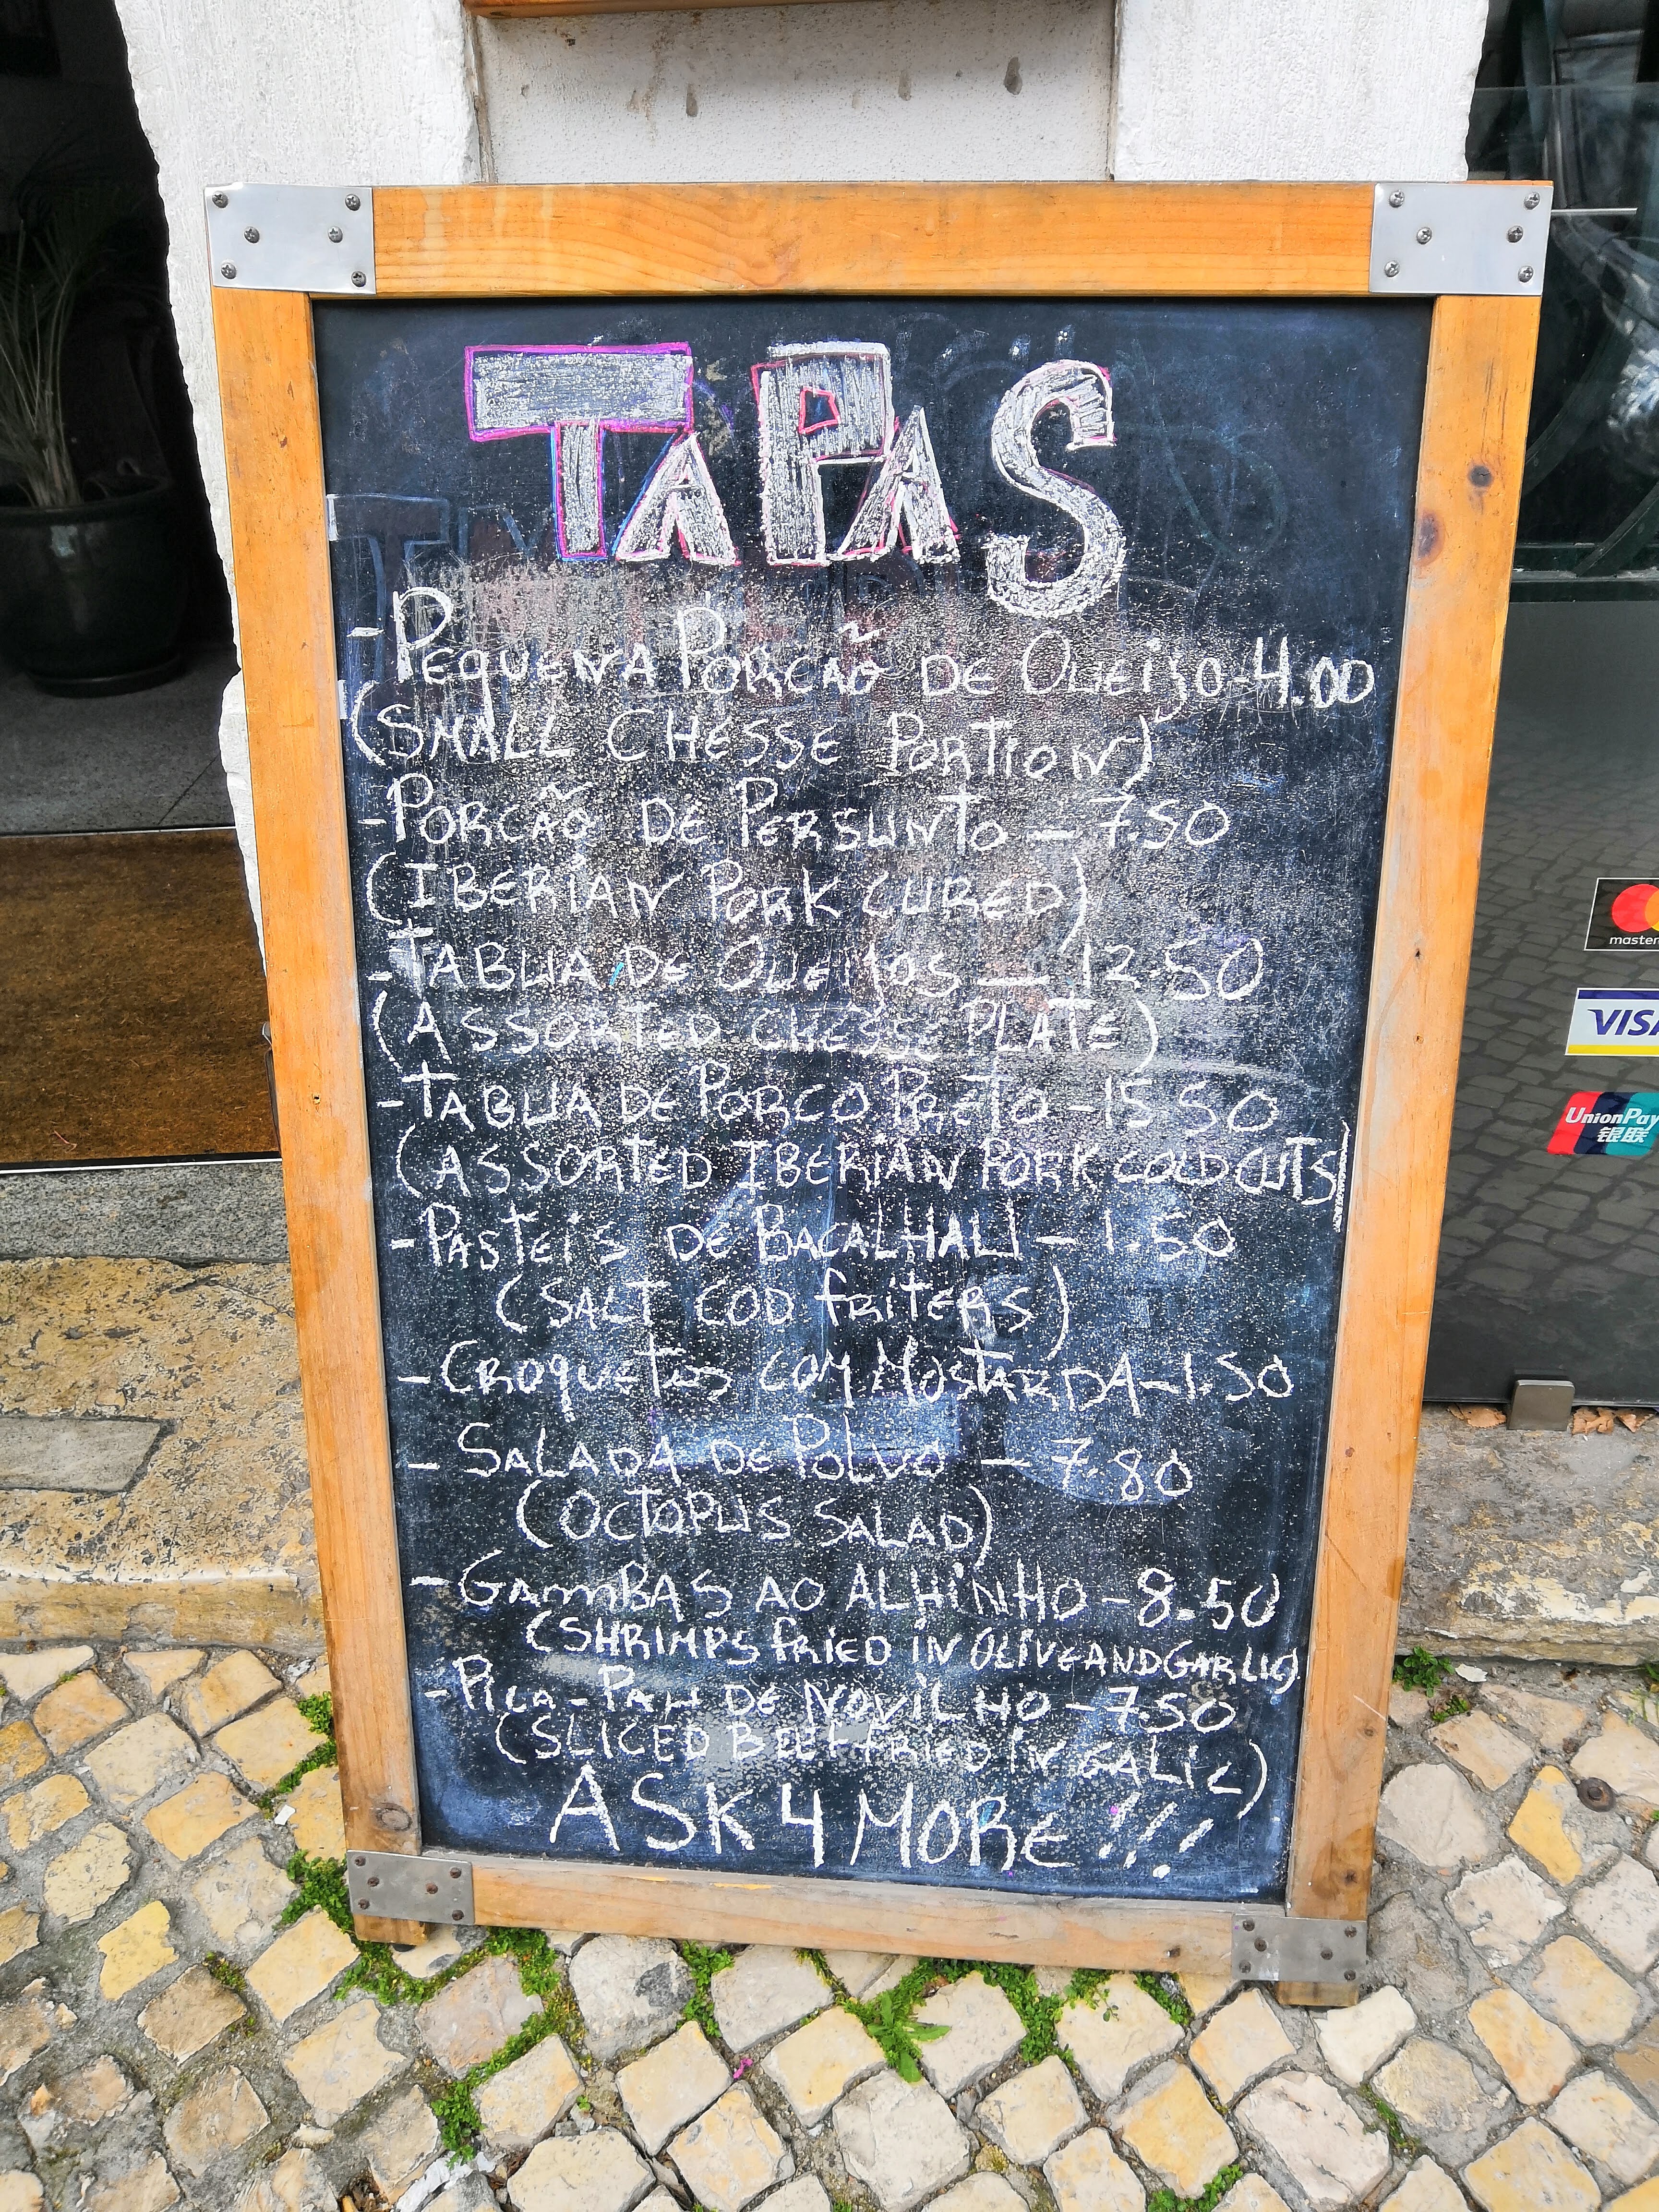 TAPAS
- PEQUENA PORCÃO DE QUEIJO - 4.00
(SMALL CHESSE PORTION)
- PORCÃO DE PERSUNTO - 7.50
(IBERIAN PORK CURED)
- TABUA DE QUEIJOS - 12.50
(ASSORTED CHESSE PLATE)
- TABUA DE PORCO PRETO - 15.50
(ASSORTED IBERIAN PORK COLD CUTS)
- PASTEIS DE BACALHAU - 1.50
(SALT COD FRITERS)
- CROQUETES COM MOSTARDA - 1.50
- SALADA DE POLVO - 7.80
(OCTOPUS SALAD)
- GAMBAS AO ALHINHO - 8.50
(SHRIMPS FRIED IN OLIVE AND GARLIC)
- PICA-PAU DE NOVILHO - 7.50
(SLICED BEEF FRIED IN GALIC)
ASK 4 MORE!!!
master
VISA
UnionPay
银联